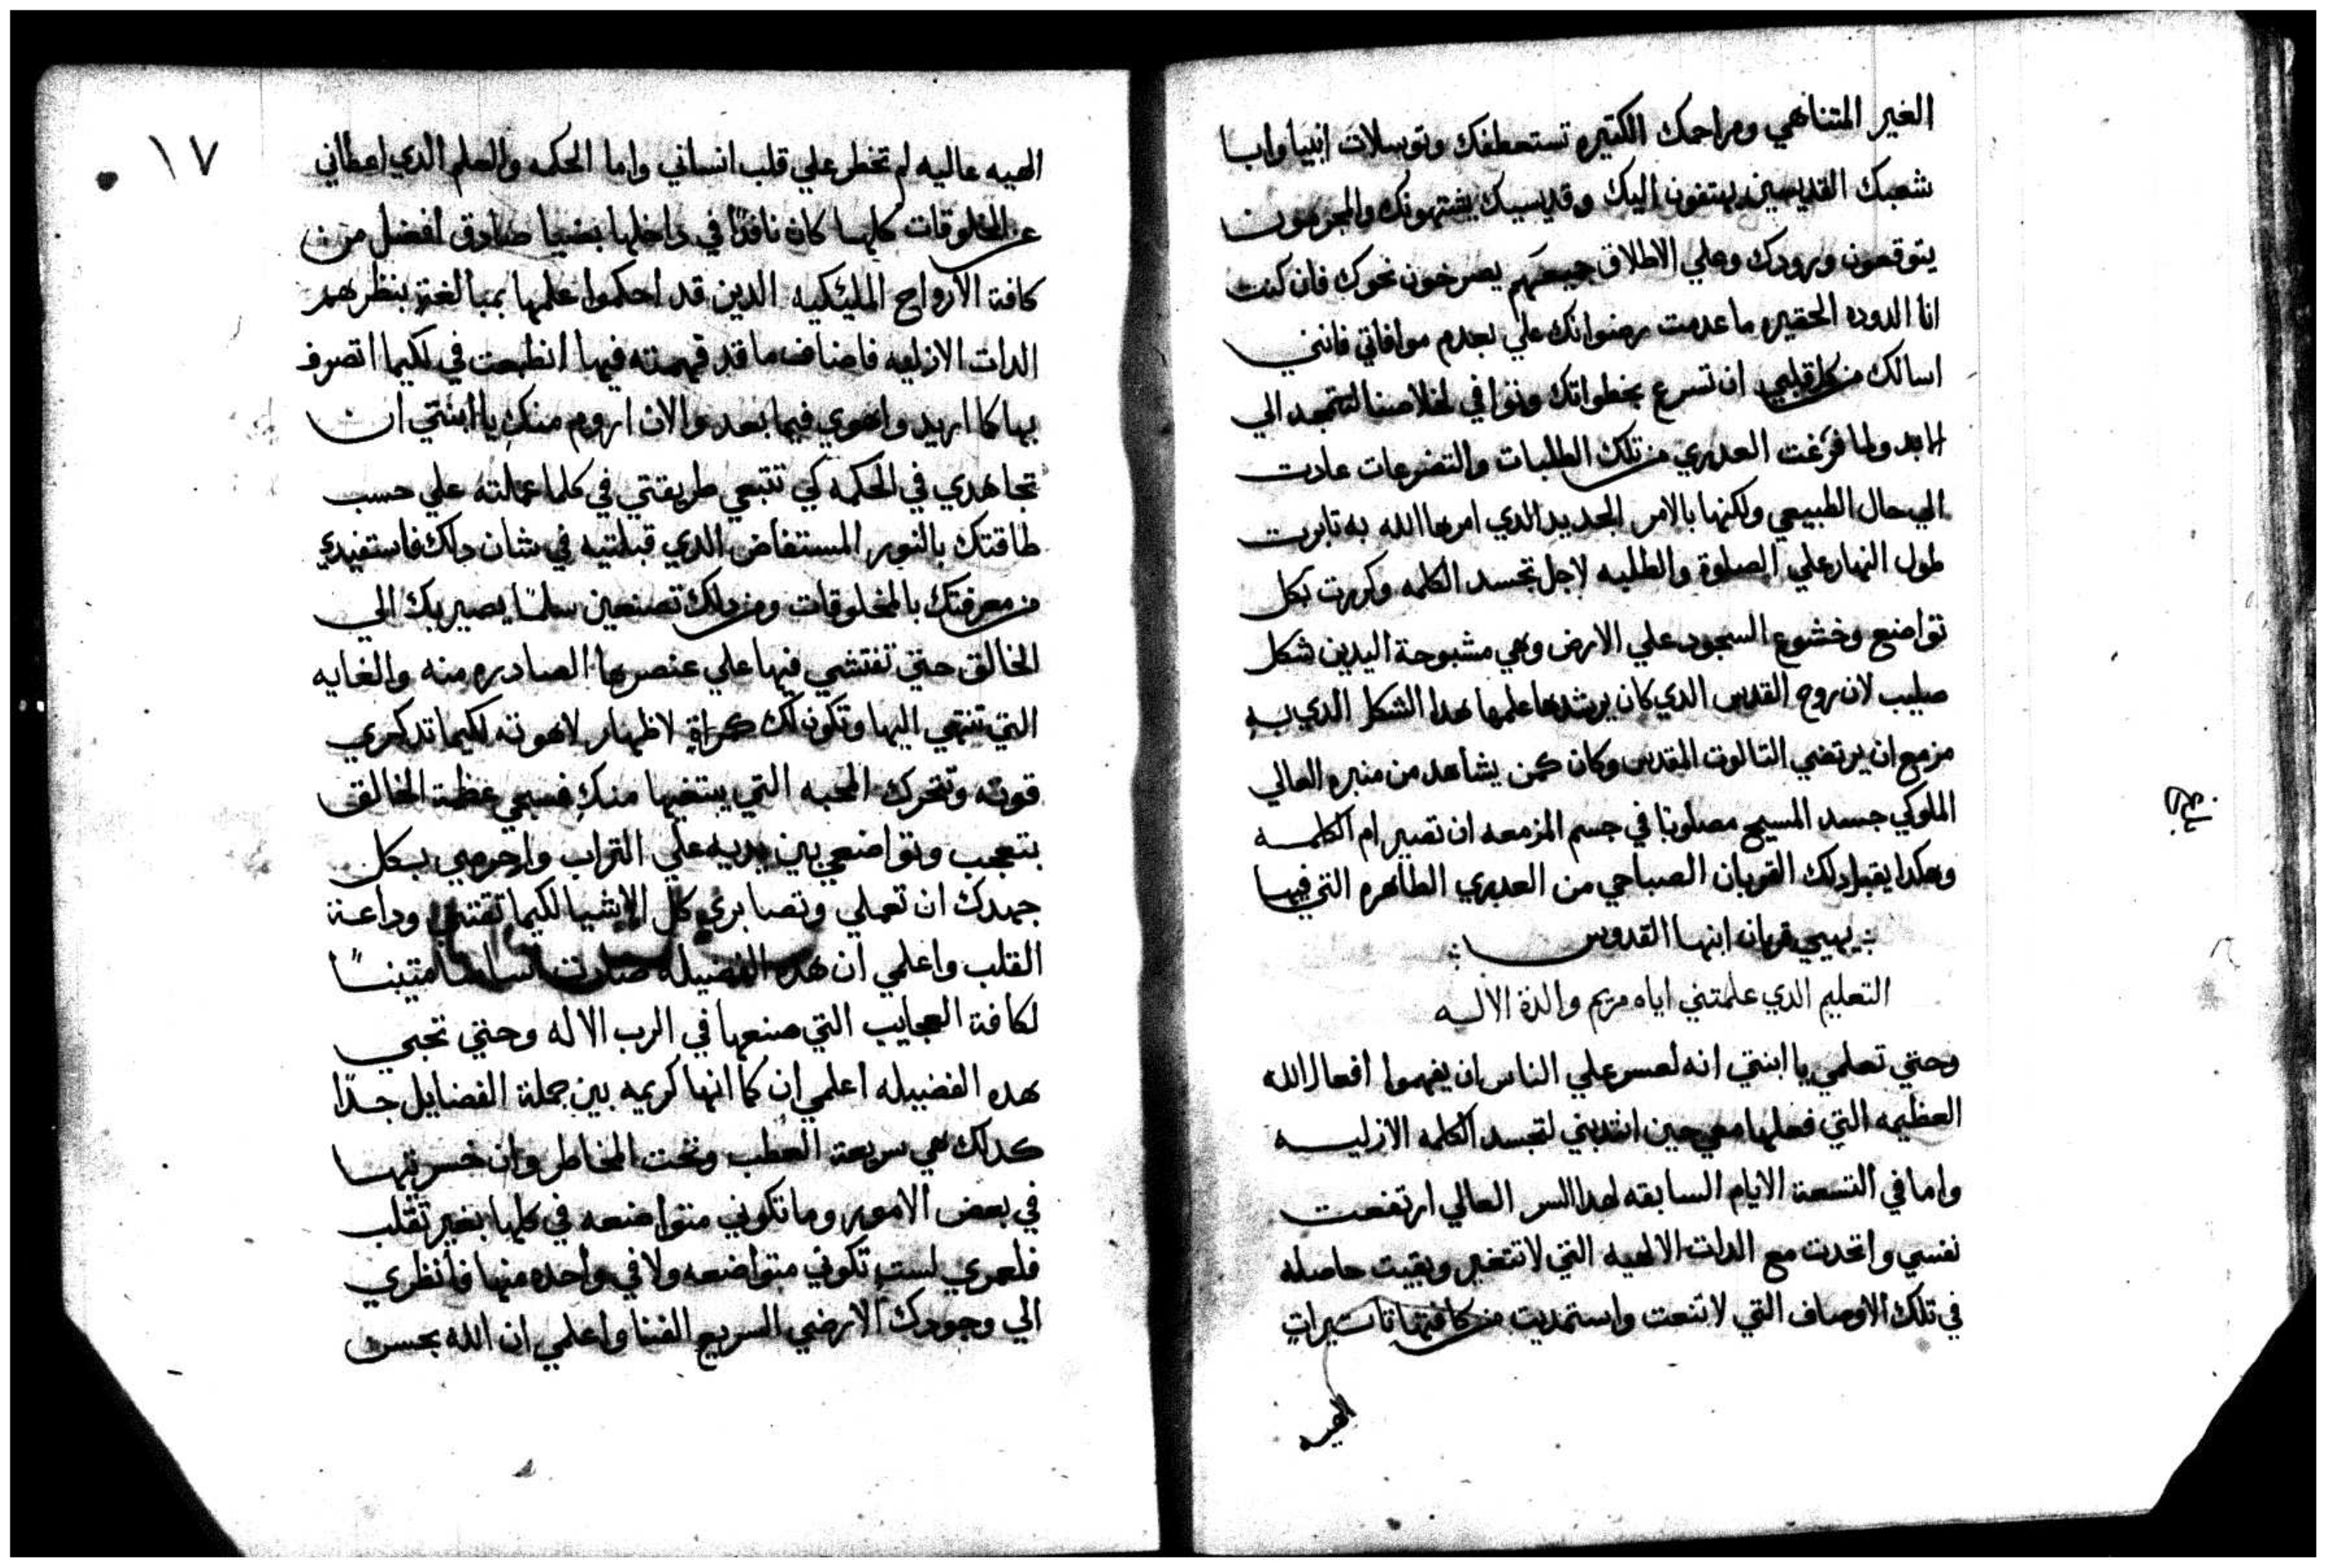 الغير المتناهي ومراحمك الكتيره تستعطفك وتوسلات انبيا وابا
شعبك القديسين يهتفون اليك وقديسيك يشتهونك والمجرمون
يتوقعون ورودك وعلي الاطلاق جميعهم يصرخون نحوك فان كنت
انا الدوده الحقيره ما عدمت رضوانك علي بعدم موافاتي فانني
اسالك من كل قلبي ان تسرع بخطواتك وتوافي لخلاصنا لتتمجد الي
الابد ولما فرغت العدري من تلك الطلبات والتضرعات عادت
الي حال الطبيعي ولكنها بالامر الجديد الدي امرها الله به تابرت
طول النهار علي الصلوة والطلبه لاجل تجسد الكلمه وكررت بكل
تواضع وخشوع السجود علي الارض وهي مشبوحة اليدين شكل
صليب لان روح القدس الدي كان يرشدها علمها هدا الشكل الدي به
مزمع ان يرتضي التالوت المقدس وكان كمن يشاهد من منبره العالي
الملوكي جسد المسيح مصلوبا في جسم المزمعه ان تصير ام الكلمه
وهكدا يقبل دلك القربان الصباحي من العدري الطاهره التي فيها
يهيي قربان ابنها القدوس
التعليم الدي علمتني اياه مريم والدة الاله
وحتي تعلمي يا ابنتي انه لعسر علي الناس ان يفهموا افعال الله
العظيمه التي فعلها معي حين انتدبني لتجسد الكلمه الازليه
واما في التسعة الايام السابقه لهدا السر العالي ارتفعت
نفسي واتحدت مع الدات الالهيه التي لا تتغير وبقيت حاصله
في تلك الاوصاف التي لا تنعت واستمديت من كافتها تاتيرات
الهيه
١٧
الهيه عاليه لم تخطر علي قلب انساني واما الحكمه والعلم الدي اعطاني
عن المخلوقات كلها كان نافدًا في داخلها بضيا صادق افضل من
كافة الارواح المليكيه الدين قد احكموا علمها بمبالغة بنظرهم
الدات الازليه فاصناف ما قد فهمته فيها انطبعت في لكيما اتصرف
بها كما اريد واهوي فيما بعد والان اروم منكِ يا ابنتي ان
تجاهدي في الحكمه كي تتبعي طريقتي في كلما عملته علي حسب
طاقتك بالنور المستفاض الدي قبلتيه في شان دلك فاستفيدي
من معرفتك بالمخلوقات ومن دلك تصنعين سلمًا يصير بك الي
الخالق حتي تفتشي فيها علي عنصرها الصادره منه والغايه
التي تنتهي اليها وتكون لك كمراة لاظهار لاهوته لكيما تدكري
قوته وتتحرك المحبه التي يبتغيها منكِ فسبحي عظمة الخالق
بتعجب وتواضعي بين يديه علي التراب واحرصي بكل
جهدك ان تعملي وتصابري كل الاشيا لكيما تقتني وداعة
القلب واعلمي ان هده الفضيله صارت اساسًا متينًا
لكافة العجايب التي صنعها في الرب الاله وحتي تحبي
هده الفضيله اعلمي ان كما انها كريمه بين جملة الفضايل جدًا
كدلك هي سريعة العطب وتحت المخاطر وان خسرتيها
في بعض الامور وما تكوني متواضعه في كلها بغير تقلب
فلعمري لستِ تكوني متواضعه ولا في واحده منها فانظري
الي وجودك الارضي السريع الفنا واعلمي ان الله بحسن